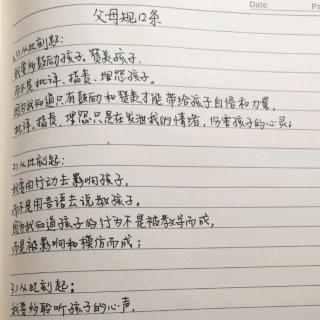 Date
Pa
父母规12条
(1)从此刻起:
我要多鼓励孩子、赞美孩子,
而不是批评、指责、埋怨孩子。
因为我知道只有鼓励和赞美才能带给孩子自信和力量,
批评、指责、埋怨只是在发泄我的情绪,伤害孩子的心灵;
2)从此刻起:
我要用行动去影响孩子,
而不是用言语去说教孩子。
因为我知道孩子的行为不是被教导而成,
而是被影响和模仿而成;
3)从此刻起:
我要多聆听孩子的心声,